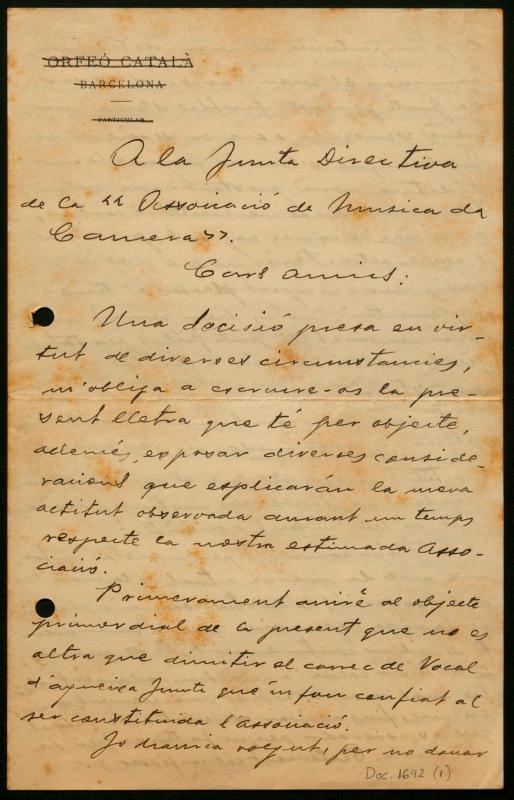 ORFEÓ CATALÀ
BARCELONA
PARTICULAR
A la Junta Directiva
de la "Associació de Musica da
Camera".
Cars amics:
Una decisió presa en vir-
tut de diverses circumstancies,
m'obliga a escriure-os la pre-
sent lletra que té per objecte,
ademés, exposar diverses conside-
racions que esplicarán la meva
actitut observada durant un temps
respecte la nostra estimada Asso-
ciació.
Primerament aniré al objecte
primordial de la present que no es
altra que dimitir el carrec de Vocal
d'aqueixa Junta que'm fou confiat al
ser constituida l'associació.
Jo hauria volgut, per no donar
Doc. 1692 (1)